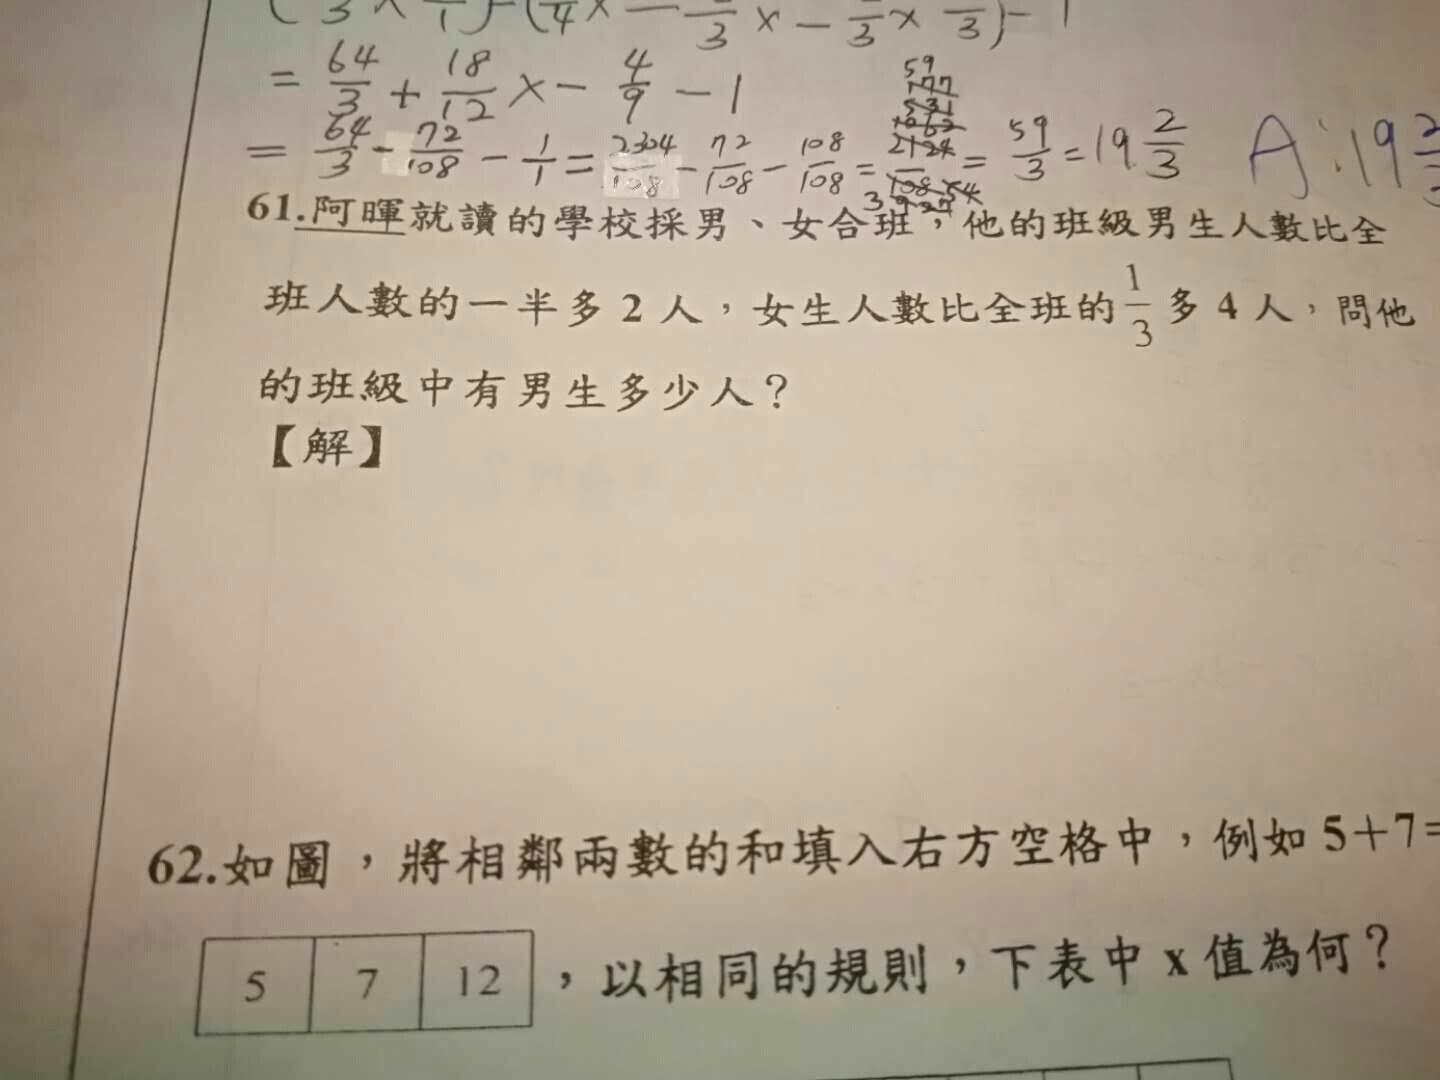 = 64/3 + 18/12 × - 4/9 - 1
= 64/3 - 72/108 - 1/1 = 2304/108 - 72/108 - 108/108 = 2124/108 = 59/3 = 19 2/3 A:19
61.阿暉就讀的學校採男、女合班，他的班級男生人數比全
班人數的一半多 2 人，女生人數比全班的 1/3 多 4 人，問他
的班級中有男生多少人？
【解】
62.如圖，將相鄰兩數的和填入右方空格中，例如 5＋7=
5 7 12 ，以相同的規則，下表中 x 值為何？